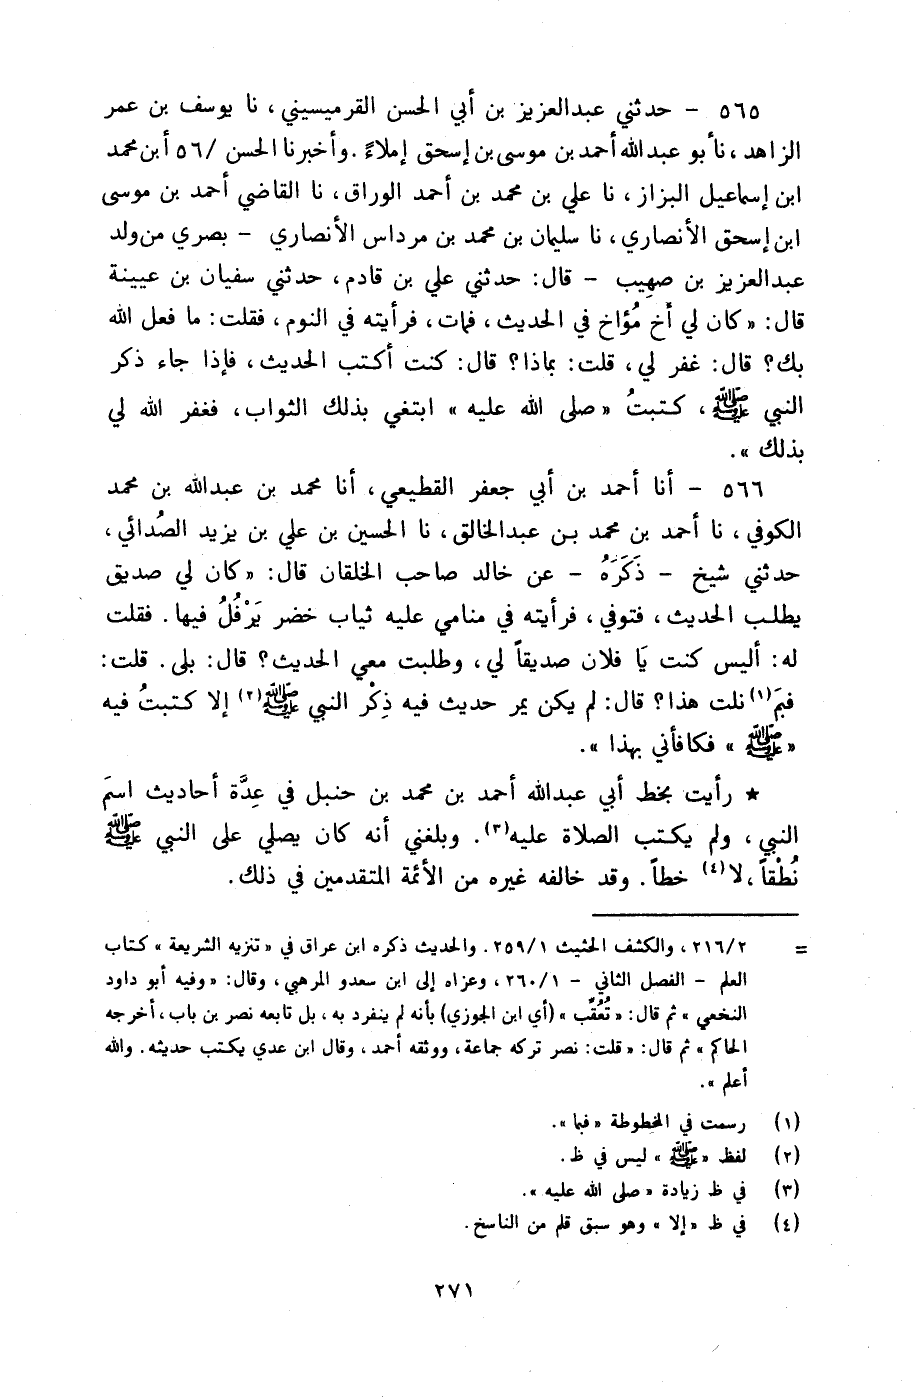 ٥٦٥ - حدثني عبدالعزيز بن أبي الحسن القرميسيني، نا يوسف بن عمر
الزاهد، نا أبو عبدالله أحمد بن موسى بن إسحق إملاءً. وأخبرنا الحسن /٥٦ أ بن محمد
ابن إسماعيل البزاز، نا علي بن محمد بن أحمد الوراق، نا القاضي أحمد بن موسى
ابن إسحق الأنصاري، نا سليمان بن محمد بن مرداس الأنصاري - بصري من ولد
عبدالعزيز بن صهيب - قال: حدثني علي بن قادم، حدثني سفيان بن عيينة
قال: «كان لي أخ مُؤاخ في الحديث، فمات، فرأيته في النوم، فقلت: ما فعل الله
بك؟ قال: غفر لي، قلت: بماذا؟ قال: كنت أكتب الحديث، فإذا جاء ذكر
النبي ﷺ، كتبتُ «صلى الله عليه» ابتغي بذلك الثواب، فغفر الله لي
بذلك».
٥٦٦ - أنا أحمد بن أبي جعفر القطيعي، أنا محمد بن عبدالله بن محمد
الكوفي، نا أحمد بن محمد بن عبدالخالق، نا الحسين بن علي بن يزيد الصُدائي،
حدثني شيخ - ذَكَرَهُ - عن خالد صاحب الخلقان قال: «كان لي صديق
يطلب الحديث، فتوفي، فرأيته في منامي عليه ثياب خضر يَرْفُلُ فيها. فقلت
له: أليس كنت يَا فلان صديقاً لي، وطلبت معي الحديث؟ قال: بلى. قلت:
فبمَ(١) نلت هذا؟ قال: لم يكن يمر حديث فيه ذِكْر النبي ﷺ(٢) إلا كتبتُ فيه
«ﷺ» فكافأني بهذا».
★ رأيت بخط أبي عبدالله أحمد بن محمد بن حنبل في عِدَّة أحاديث اسمَ
النبي، ولم يكتب الصلاة عليه(٣). وبلغني أنه كان يصلي على النبي ﷺ
نُطْقاً، لا(٤) خطاً. وقد خالفه غيره من الأئمة المتقدمين في ذلك.
= ٢١٦/٢، والكشف الحثيث ٢٥٩/١. والحديث ذكره ابن عراق في «تنزيه الشريعة» كتاب
العلم - الفصل الثاني - ٢٦٠/١، وعزاه إلى ابن سعدو المرهبي، وقال: «وفيه أبو داود
النخعي» ثم قال: «تُعُقِّب» (أي ابن الجوزي) بأنه لم ينفرد به، بل تابعه نصر بن باب، أخرجه
الحاكم» ثم قال: «قلت: نصر تركه جماعة، ووثقه أحمد، وقال ابن عدي يكتب حديثه. والله
أعلم».
(١) رسمت في المخطوطة «فبما».
(٢) لفظ «ﷺ» ليس في ظ.
(٣) في ظ زيادة «صلى الله عليه».
(٤) في ظ «إلا» وهو سبق قلم من الناسخ.
٢٧١